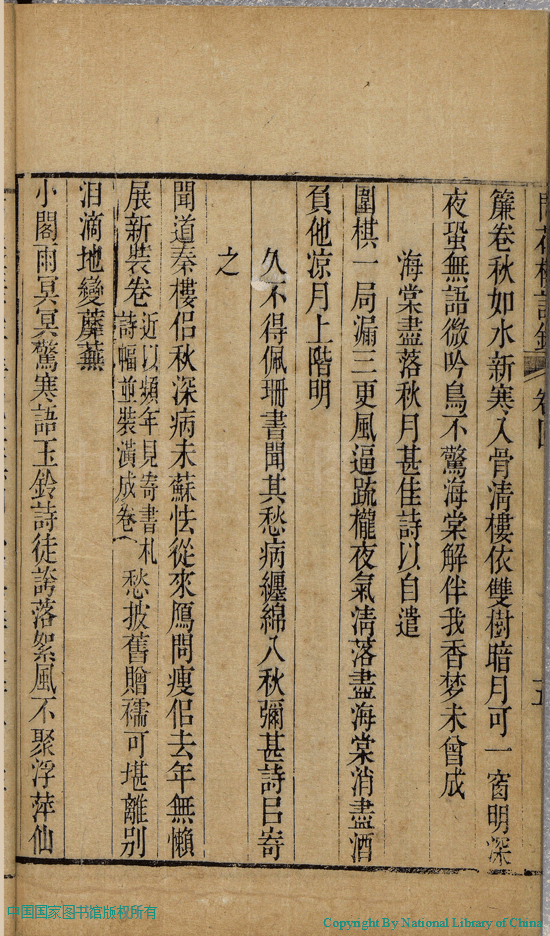 卷四
簾卷秋如水新寒入骨清樓依雙樹暗月可一窗明深
夜蛩無語微吟鳥不驚海棠解伴我香梦未曾成
海棠盡落秋月甚佳詩以自遣
圍棋一局漏三更風逼疏櫳夜氣清落盡海棠消盡酒
負他凉月上階明
久不得佩珊書聞其愁病纏綿入秋彌甚詩㠯寄
之
聞道秦樓侣秋深病未蘇怯從來鴈問瘦佀去年無懶
展新裝卷近以頻年見寄書札詩幅並裝潢成卷愁披舊贈襦可堪離別
泪滴地變蘼蕪
小閣雨冥冥驚寒語玉鈴詩徒誇落絮風不聚浮萍仙
中国国家图书馆版权所有
Copyright By National Library of China